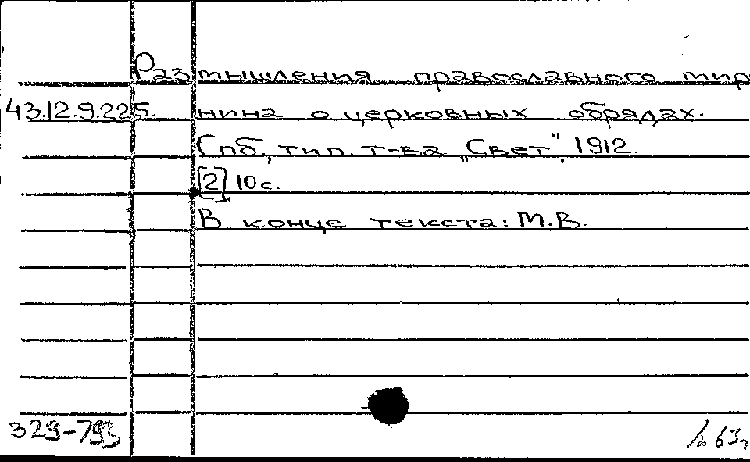 Размышления православного миря
43.12.9.225. нина о церковных обрядах.
Спб, тип. т-ва „Свет", 1912.
[2] 10 с.
В конце текста: М.В.
329-793